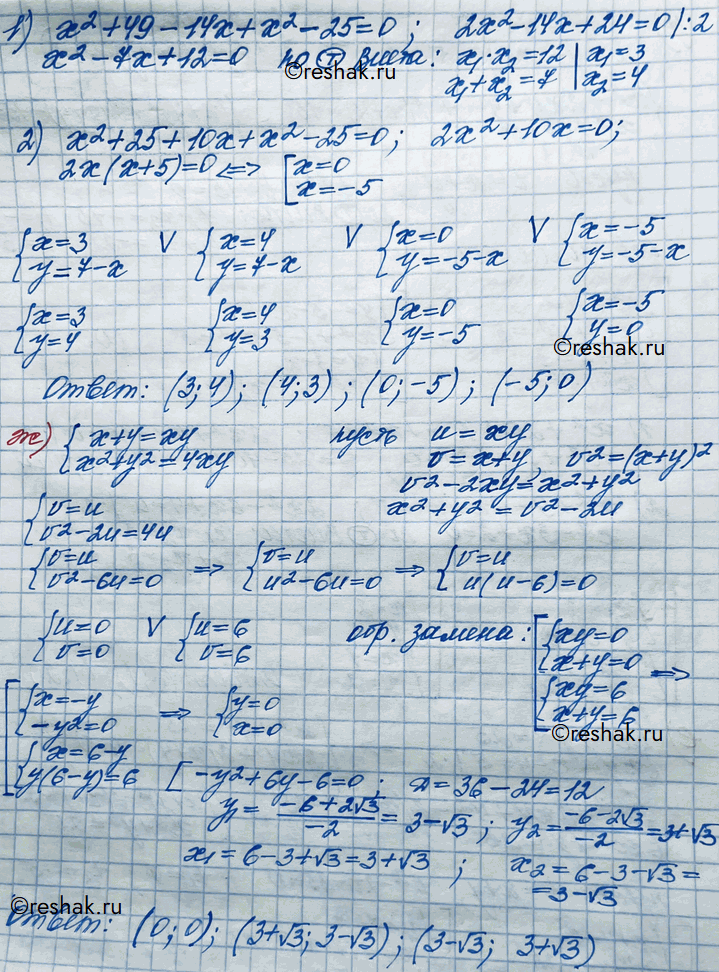 1) x²+49-14x+x²-25=0; 2x²-14x+24=0|:2
x²-7x+12=0 по Ⓣ Виета: x₁·x₂=12 | x₁=3
x₁+x₂=7 | x₂=4
©reshak.ru
2) x²+25+10x+x²-25=0; 2x²+10x=0;
2x(x+5)=0 <=> [x=0
x=-5
{x=3 V {x=4 V {x=0 V {x=-5
y=7-x y=7-x y=-5-x y=-5-x
{x=3 {x=4 {x=0 {x=-5
y=4 y=3 y=-5 y=0
©reshak.ru
Ответ: (3;4); (4;3); (0;-5); (-5;0)
ж) {x+y=xy пусть u=xy
x²+y²=4xy v=x+y, v²=(x+y)²
v²-2xy=x²+y²
{v=u x²+y²=v²-2u
v²-2u=4u
{v=u => {v=u => {v=u
v²-6u=0 u²-6u=0 u(u-6)=0
{u=0 V {u=6 обр. замена: [{xy=0
v=0 v=6 x+y=0 =>
{xy=6
x+y=6
©reshak.ru
[{x=-y => {y=0
-y²=0 x=0
{x=6-y
y(6-y)=6 [-y²+6y-6=0; D=36-24=12
y₁=(-6+2√3)/-2=3-√3; y₂=(-6-2√3)/-2=3+√3
x₁=6-3+√3=3+√3; x₂=6-3-√3=
=3-√3
©reshak.ru
Ответ: (0;0); (3+√3; 3-√3); (3-√3; 3+√3)